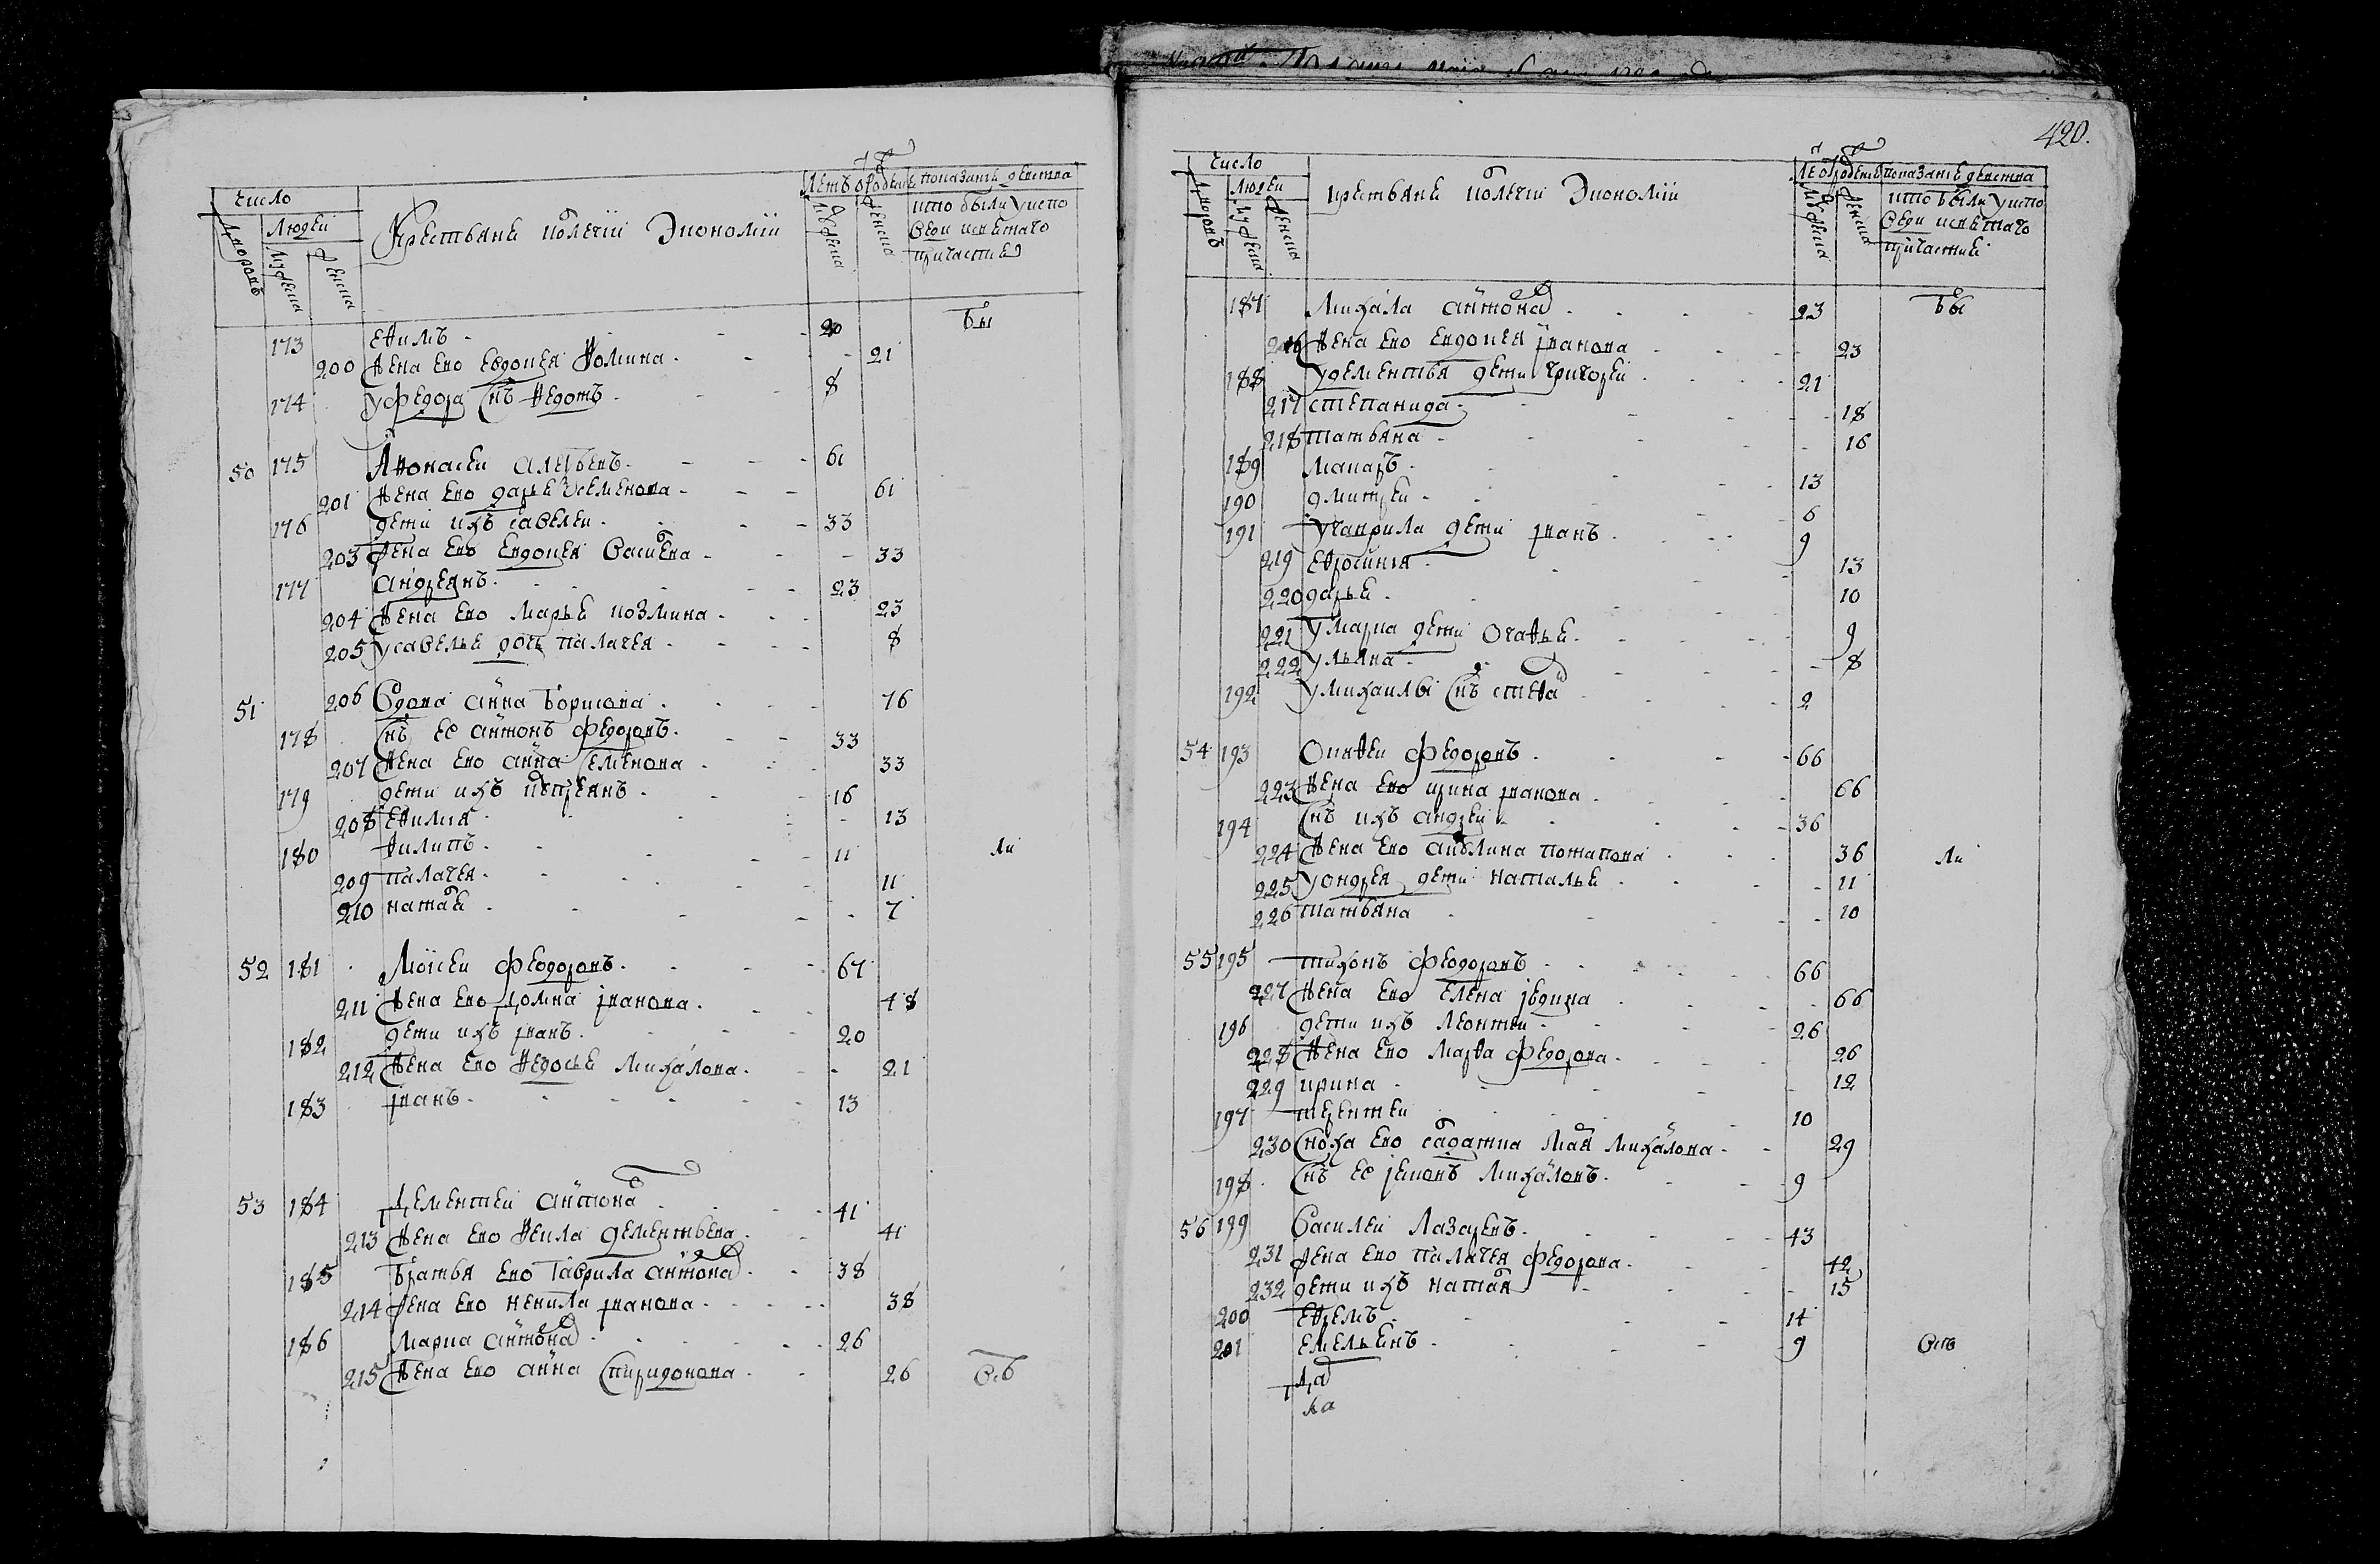 число
Дворовъ
Людей
Мужеска
Женска
Крестьяне колегии Экономии
Летъ от рождения
Мужеска
Женска
показание действа
кто были у испо
веди и святаго
причастия
173 Ѳилипъ 20
200 жена ево Евдокея Ѳомина 21
174 у Федора снъ Ѳедотъ 8
бы
50 175 Аѳонасеи Алеѯеевъ 61
201 жена ево дарья Семенова 61
176 дети ихъ Савелеи 33
203 жена ево Евдокея Васильева 33
177 андреянъ 23
204 жена ево Марья козмина 23
205 у савелья дочь палагея 8
51 206 вдова анна борисова 76
178 снъ ее антонъ федоровъ 33
207 жена ево анна Семенова 33
179 дети ихъ 16
208 Еѳимия 13
180 Ѳилипъ 11
209 палагея 11
210 наталья 7
ли
52 181 Моисеи Феодоровъ 67
211 жена ево Домна ивановa 48
182 дети ихъ иванъ 20
212 жена ево Ѳедосья Михаилова 21
183 иванъ 13
53 184 Дементеи антоновъ 41
213 жена ево Ѳекла дементьева 41
185 братья ево Гаврила антоновъ 38
214 жена ево ненила иванова 38
186 Марка антоновъ 26
215 жена ево анна Спиридонова 26
всѣ
420.
число
Дворовъ
Людеи
Мужеска
Женска
крестьяне колегии Экономии
Ле от рождения
Мужеска
Женска
показание действа
кто были у испо
веди и святаго
причастия
187 Михаила антоновъ 23
бы
216 жена ево Евдокея иванова 23
188 у дементья дети григореи 21
217 степанида 18
218 татьяна 16
189 макаръ 13
190 дмитреи 6
191 у гаврила дети иванъ 9
219 Еѳросиния 13
220 дарья 10
221 у Марка дети Агаѳья 9
222 ульяна 8
192 у михаилы снъ стеѳанъ 2
54 193 Фодоровъ 66
223 жена ево ирина иванова 66
194 снъ ихъ андреи 36
224 жена ево акулина потапова 36
225 у андрея дети наталья 11
226 татьяна 10
ли
55 195 тихонъ Феодоровъ 66
227 жена ево Елена 66
196 дети ихъ Леонтеи 26
228 жена ево Марѳа Федорова 26
229 ирина 12
197 терентеи 10
230 сноха ево салдатка Марья Михаилова 29
198 снъ ее Михаиловъ 9
56 199 Василеи Лазаревъ 43
231 жена ево палагея федорова 42
232 дети ихъ наталья 15
200 Еѳремъ 14
201 Емельянъ 9
всѣ
Да
ка